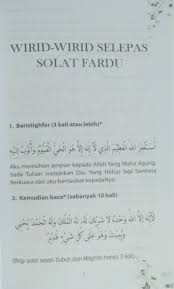 WIRID-WIRID SELEPAS
SOLAT FARDU
1. Beristighfar (3 kali atau lebih)*
أَسْتَغْفِرُ اللهَ الْعَظِيْمَ الَّذِي لَا إِلٰهَ إِلَّا هُوَ الْحَيُّ الْقَيُّوْمُ وَأَتُوْبُ إِلَيْهِ
Aku memohon ampun kepada Allah Yang Maha Agung,
tiada Tuhan melainkan Dia, Yang Hidup lagi Sentiasa
Berkuasa dan aku bertaubat kepadaNya
2. Kemudian baca* (sebanyak 10 kali)
لَا إِلٰهَ إِلَّا اللهُ وَحْدَهُ لَا شَرِيْكَ لَهُ، لَهُ الْمُلْكُ وَلَهُ الْحَمْدُ يُحْيِي
وَيُمِيْتُ وَهُوَ عَلَى كُلِّ شَيْءٍ قَدِيْرٌ
(Bagi solat selain Subuh dan Maghrib hanya 3 kali)